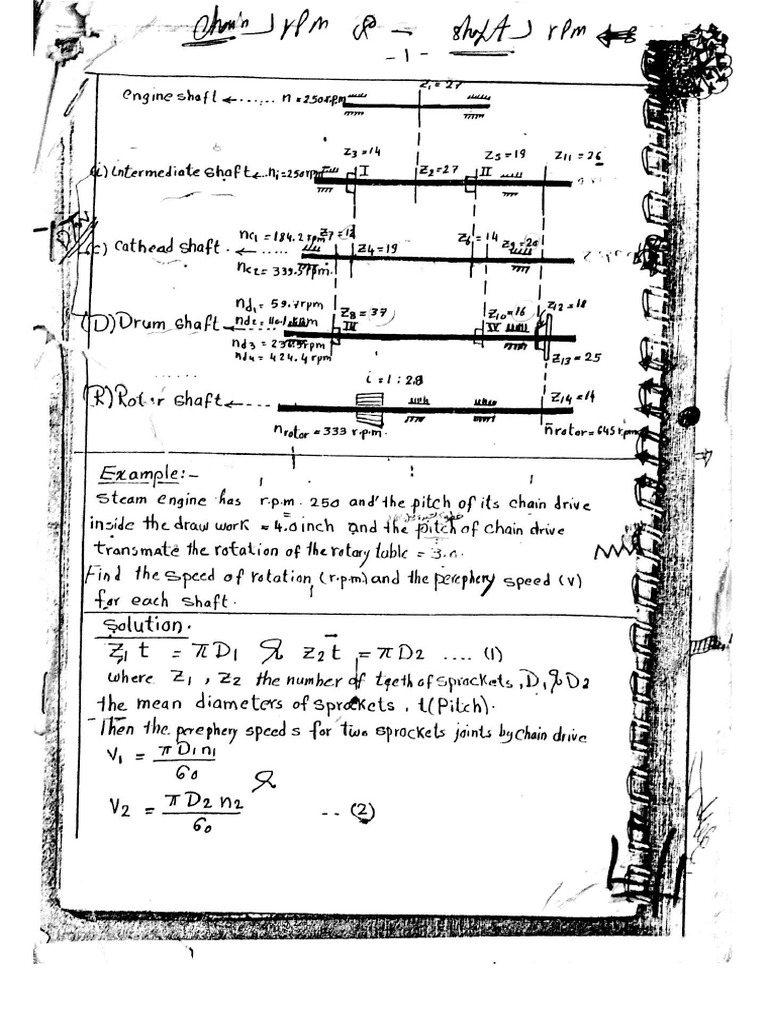 chain rpm & shaft rpm
-1-
Z1 = 27
engine shaft n = 250 r.p.m
Z3 = 14 Z5 = 19 Z11 = 26
(i) intermediate shaft ni = 250 rpm I Z2 = 27 II
nc1 = 184.2 rpm Z7 = 12 Z6 = 14 Z9 = 20
(C) Cathead shaft. Z4 = 19
nc2 = 339.3 rpm.
nd1 = 59.7 rpm Z12 = 18
(D) Drum shaft nd2 = 110.1 rpm Z8 = 37 Z10 = 16
III IV
nd3 = rpm
nd4 = 424.4 rpm Z13 = 25
i = 1 : 2.8
(R) Rotor shaft Z14 = 14
nrotor = 333 r.p.m. n̄rotor = 645 r.p.m
Example:-
Steam engine has r.p.m. 250 and the pitch of its chain drive
inside the draw work = 4.0 inch and the pitch of chain drive
transmate the rotation of the rotary table =
Find the speed of rotation (r.p.m) and the perephery speed (v)
for each shaft.
Solution.
Z1 t = πD1 & Z2 t = πD2 .... (1)
where Z1 , Z2 the number of teeth of sprockets, D1 & D2
the mean diameters of sprockets , t (Pitch).
Then the perephery speeds for two sprockets joints by chain drive
V1 = πD1n1 / 60
&
V2 = πD2 n2 / 60 -- (2)